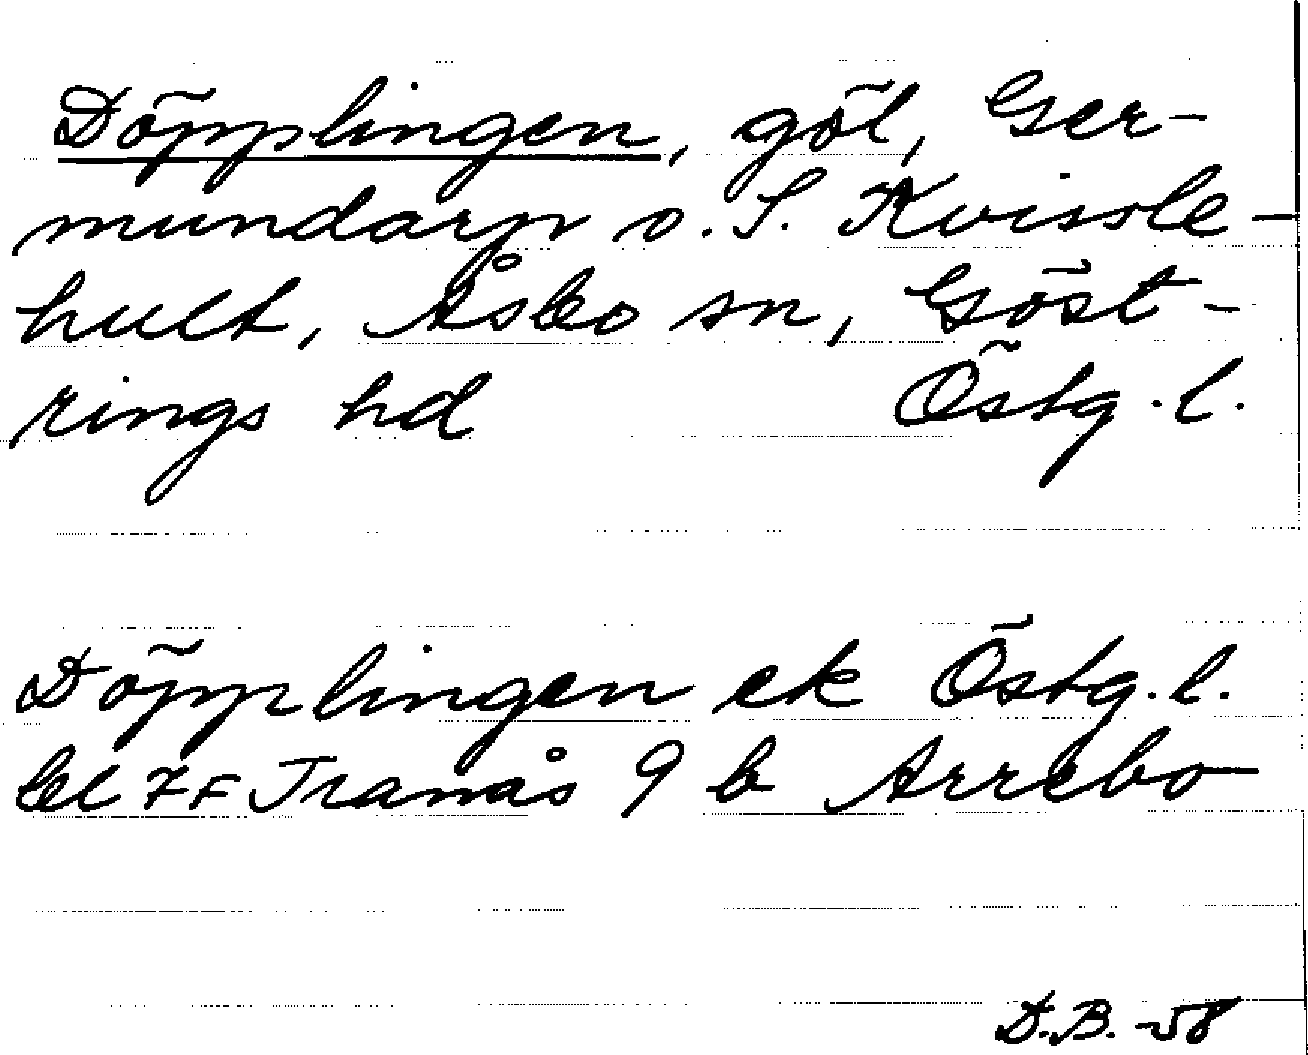 Döpplingen, göl, Ger-
mundarp o. S. Kvissle-
hult, Åsbo sn, Göst-
rings hd Östg. l.
Döpplingen ek Östg. l.
bl 7F Tranås 9 b Arrebo
D.B. -58